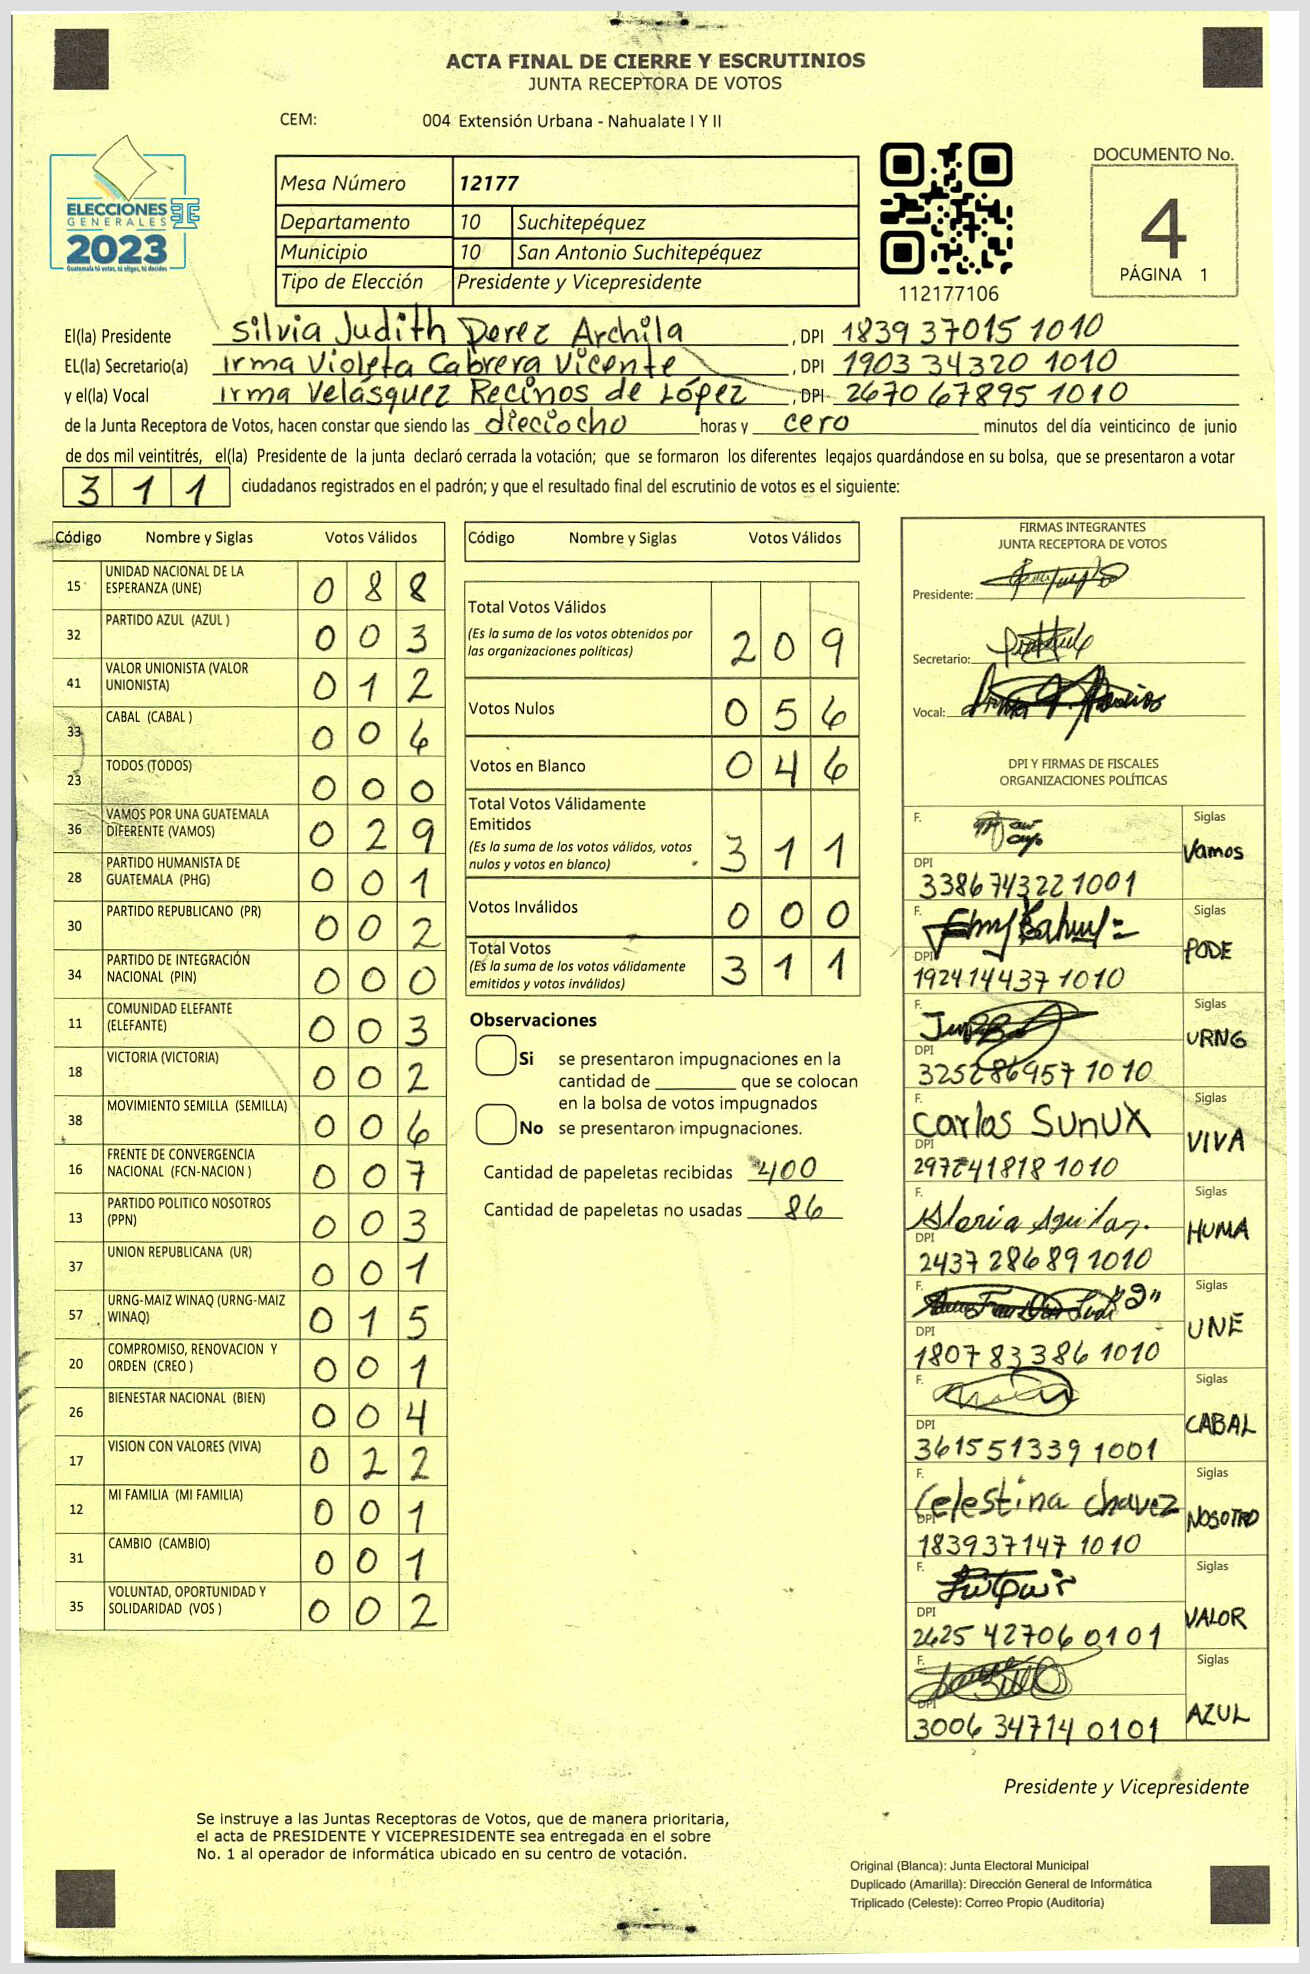 ACTA FINAL DE CIERRE Y ESCRUTINIOS
JUNTA RECEPTORA DE VOTOS
CEM: 004 Extensión Urbana - Nahualate I Y II
ELECCIONES
GENERALES
2023
Guatemala tú votas, tú eliges, tú decides
Mesa Número 12177
Departamento 10 Suchitepéquez
Municipio 10 San Antonio Suchitepéquez
Tipo de Elección Presidente y Vicepresidente
112177106
DOCUMENTO No.
4
PÁGINA 1
El(la) Presidente Silvia Judith Perez Archila , DPI 1839 37015 1010
EL(la) Secretario(a) irma Violeta Cabrera Vicente , DPI 1903 34320 1010
y el(la) Vocal irma Velásquez Recinos de López , DPI 2670 67895 1010
de la Junta Receptora de Votos, hacen constar que siendo las dieciocho horas y cero minutos del día veinticinco de junio
de dos mil veintitrés, el(la) Presidente de la junta declaró cerrada la votación; que se formaron los diferentes legajos guardándose en su bolsa, que se presentaron a votar
311 ciudadanos registrados en el padrón; y que el resultado final del escrutinio de votos es el siguiente:
Código Nombre y Siglas Votos Válidos
15 UNIDAD NACIONAL DE LA ESPERANZA (UNE) 0 8 8
32 PARTIDO AZUL (AZUL ) 0 0 3
41 VALOR UNIONISTA (VALOR UNIONISTA) 0 1 2
33 CABAL (CABAL ) 0 0 6
23 TODOS (TODOS) 0 0 0
36 VAMOS POR UNA GUATEMALA DIFERENTE (VAMOS) 0 2 9
28 PARTIDO HUMANISTA DE GUATEMALA (PHG) 0 0 1
30 PARTIDO REPUBLICANO (PR) 0 0 2
34 PARTIDO DE INTEGRACIÓN NACIONAL (PIN) 0 0 0
11 COMUNIDAD ELEFANTE (ELEFANTE) 0 0 3
18 VICTORIA (VICTORIA) 0 0 2
38 MOVIMIENTO SEMILLA (SEMILLA) 0 0 6
16 FRENTE DE CONVERGENCIA NACIONAL (FCN-NACION ) 0 0 7
13 PARTIDO POLITICO NOSOTROS (PPN) 0 0 3
37 UNION REPUBLICANA (UR) 0 0 1
57 URNG-MAIZ WINAQ (URNG-MAIZ WINAQ) 0 1 5
20 COMPROMISO, RENOVACION Y ORDEN (CREO ) 0 0 1
26 BIENESTAR NACIONAL (BIEN) 0 0 4
17 VISION CON VALORES (VIVA) 0 2 2
12 MI FAMILIA (MI FAMILIA) 0 0 1
31 CAMBIO (CAMBIO) 0 0 1
35 VOLUNTAD, OPORTUNIDAD Y SOLIDARIDAD (VOS ) 0 0 2
Código Nombre y Siglas Votos Válidos
Total Votos Válidos 2 0 9
(Es la suma de los votos obtenidos por
las organizaciones políticas)
Votos Nulos 0 5 6
Votos en Blanco 0 4 6
Total Votos Válidamente
Emitidos 3 1 1
(Es la suma de los votos válidos, votos
nulos y votos en blanco)
Votos Inválidos 0 0 0
Total Votos 3 1 1
(Es la suma de los votos válidamente
emitidos y votos inválidos)
Observaciones
Si se presentaron impugnaciones en la
cantidad de ________ que se colocan
en la bolsa de votos impugnados
No se presentaron impugnaciones.
Cantidad de papeletas recibidas 400
Cantidad de papeletas no usadas 86
FIRMAS INTEGRANTES
JUNTA RECEPTORA DE VOTOS
Presidente:
Secretario:
Vocal:
DPI Y FIRMAS DE FISCALES
ORGANIZACIONES POLÍTICAS
F. Siglas
Vamos
DPI
3386743221001
F. Siglas
PODE
DPI
192414437 1010
F. Siglas
URNG
DPI
325286957 1010
F. Carlos Sunux Siglas
VIVA
DPI
297241818 1010
F. Gloria Aguilar. Siglas
HUMA
DPI
2437 28689 1010
F. Siglas
UNE
DPI
1807 83386 1010
F. Siglas
CABAL
DPI
361551339 1001
F. Celestina Chavez Siglas
NOSOTRO
DPI
183937147 1010
F. Siglas
VALOR
DPI
2625 42706 0101
F. Siglas
AZUL
DPI
3006 34714 0101
Presidente y Vicepresidente
Se instruye a las Juntas Receptoras de Votos, que de manera prioritaria,
el acta de PRESIDENTE Y VICEPRESIDENTE sea entregada en el sobre
No. 1 al operador de informática ubicado en su centro de votación.
Original (Blanca): Junta Electoral Municipal
Duplicado (Amarilla): Dirección General de Informática
Triplicado (Celeste): Correo Propio (Auditoría)